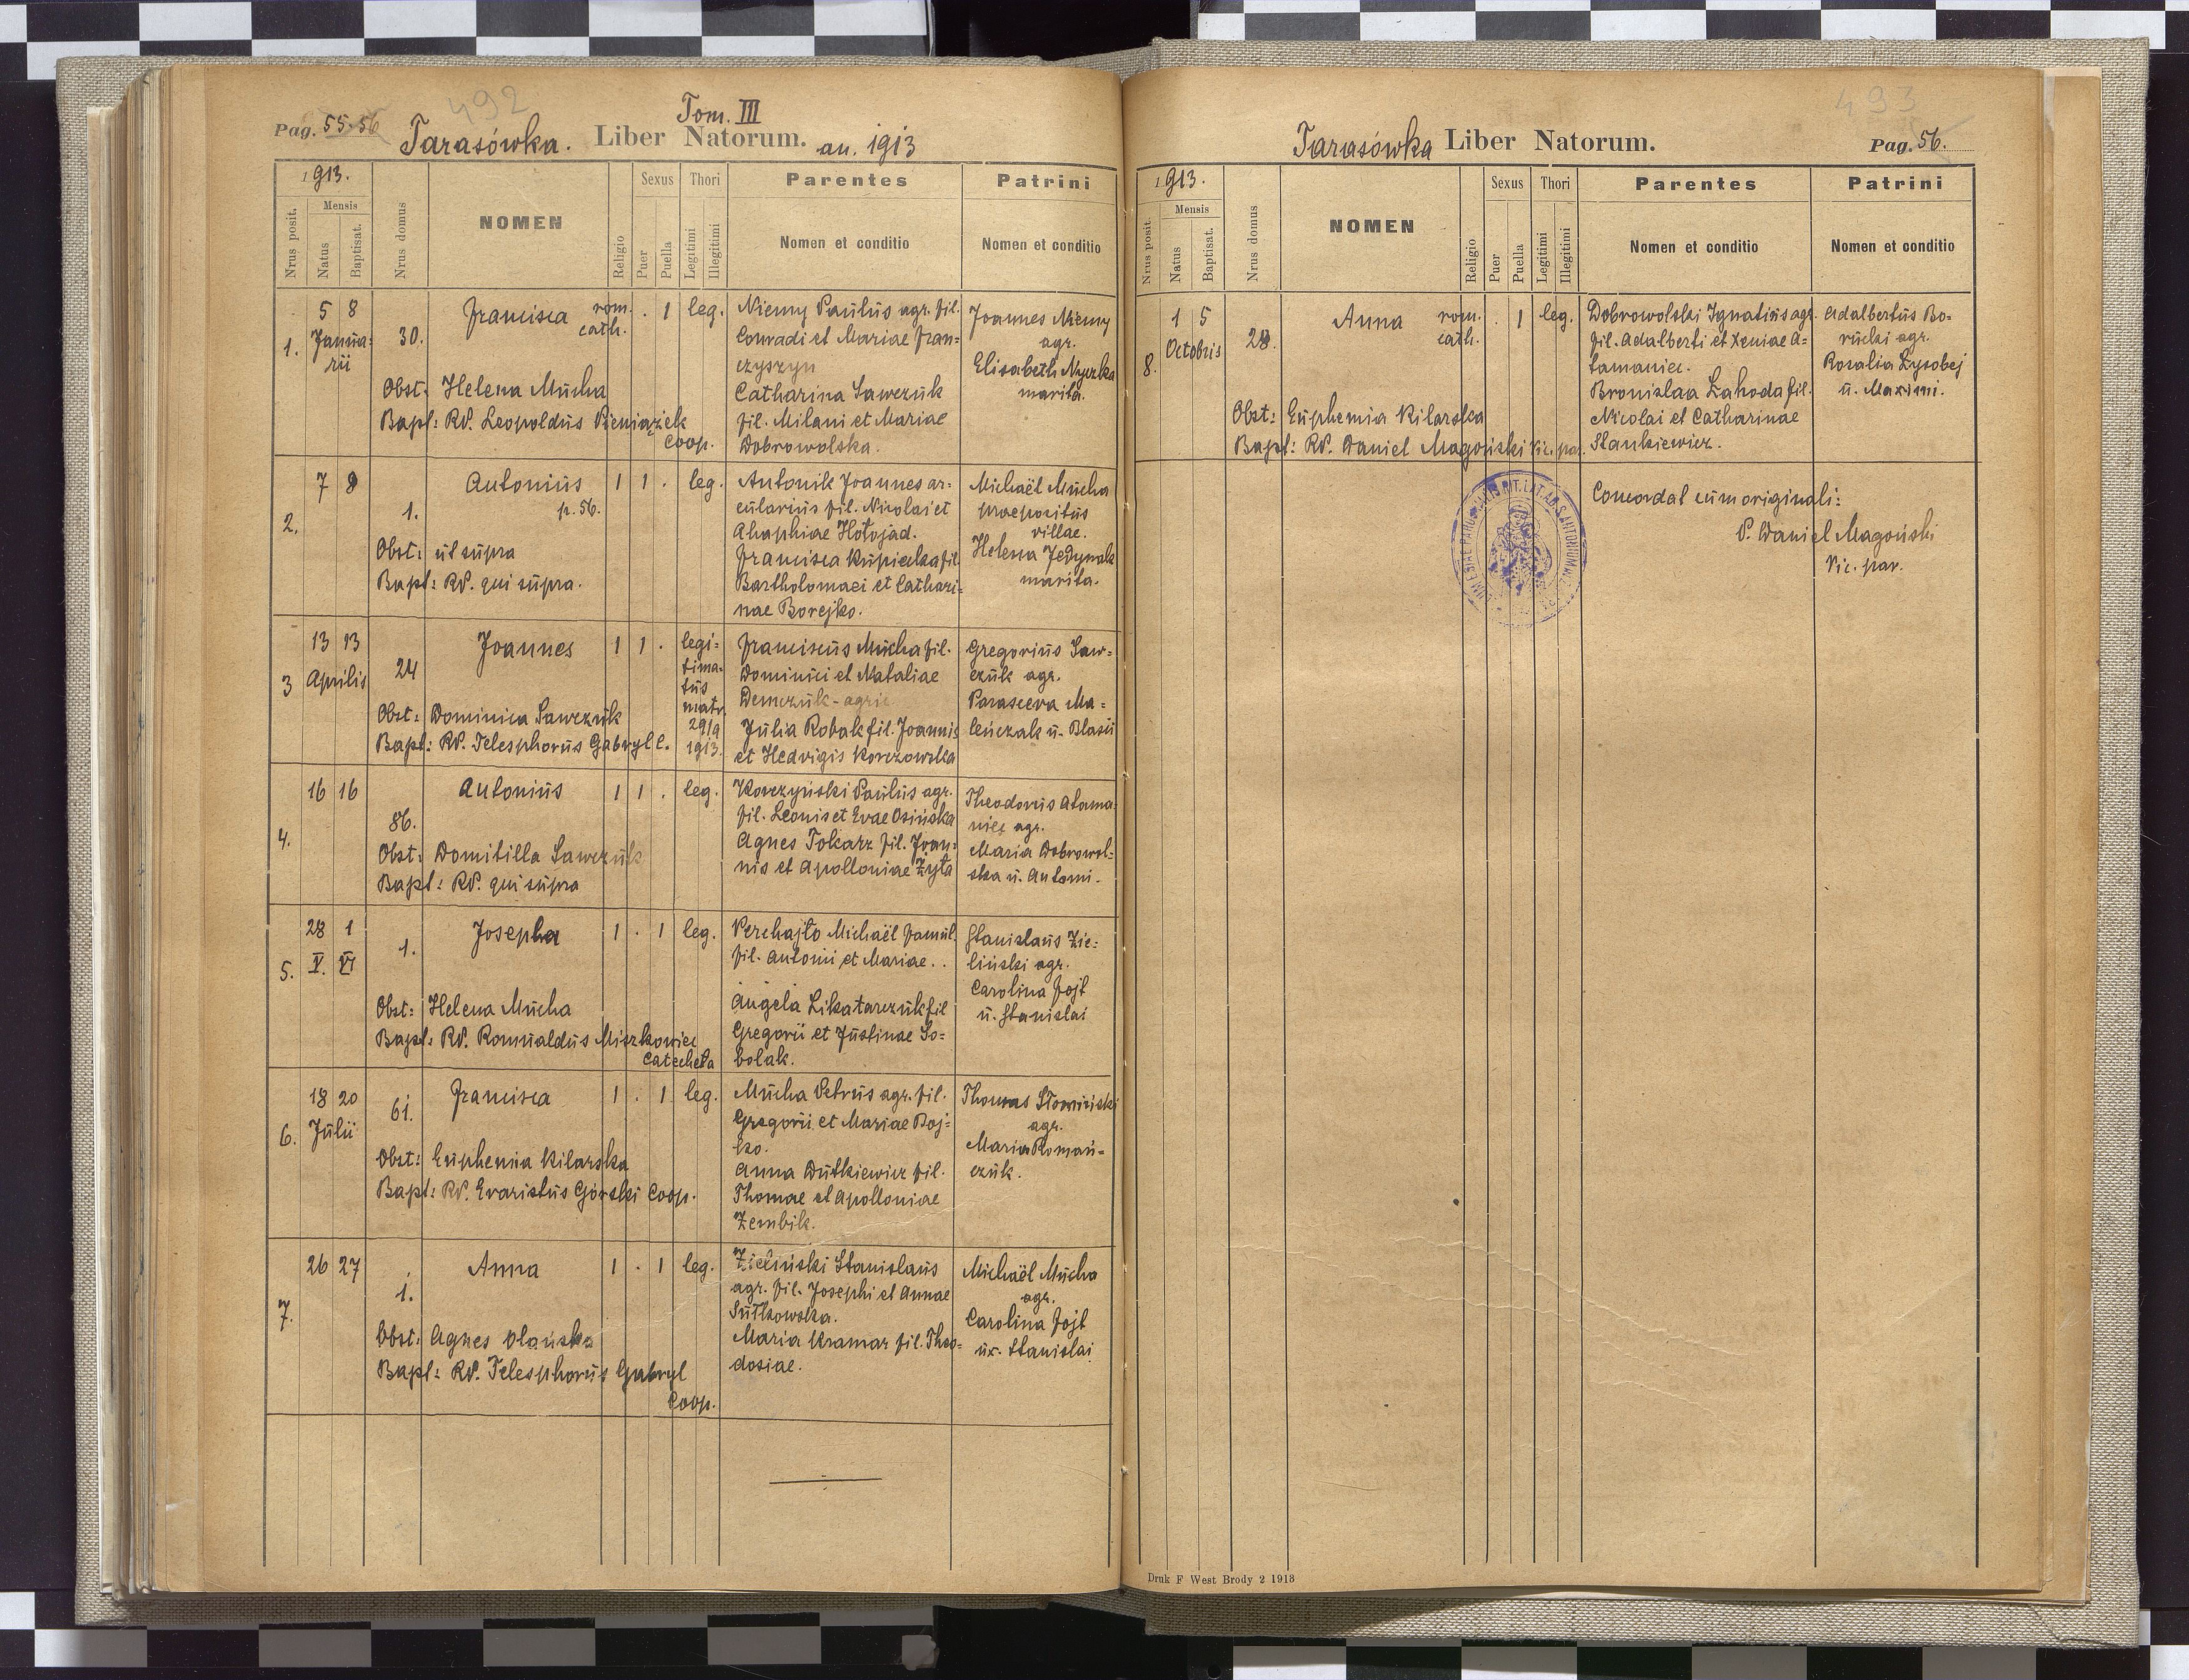 492
Tom. III
Pag. 55-56
Tarasówka. Liber Natorum. an. 1913
1913.
Nrus posit.
Mensis
Natus
Baptisat.
Nrus domus
NOMEN
Religio
Sexus
Puer
Puella
Thori
Legitimi
Illegitimi
Parentes
Nomen et conditio
Patrini
Nomen et conditio
1.
5 8
Janua-
rii
30.
Francisca
rom.
cath.
. 1 leg.
Obst: Helena Mucha
Bapt: RP. Leopoldus Pieniązek
Coop.
Niemy Paulus agr. fil.
Conradi et Mariae Fran=
czyszyn
Catharina Sawczuk
fil. Milani et Mariae
Dobrowolska.
Joannes Niemy
agr.
Elisabeth Nyczka
marita.
2.
7 8
1.
Antonius
p. 56.
1 1 . leg.
Obst: ut supra
Bapt: RP. qui supra.
Antonik Joannes ar=
cularius fil. Nicolai et
Ahaphiae Hołojad.
Francisca Kupiecka fil.
Bartholomaei et Cathari=
nae Borejko.
Michaël Mucha
praepositus
villae.
Helena Jedynak
marita.
3
13 13
Aprilis
24
Joannes
1 1 .
legi=
tima=
tus
matr.
29/9
1913.
Obst: Dominica Sawczuk
Bapt: RP. Telesphorus Gabryl c.
Franciscus Mucha fil.
Dominici et Nataliae
Demczuk - agric
Julia Robak fil. Joannis
et Hedvigis Korczowska
Gregorius Saw=
czuk agr.
Parasceva Ma=
leńczak u. Blasii
4.
16 16
86.
Antonius
1 1 . leg.
Obst: Domitilla Sawczuk
Bapt: RP. qui supra
Korczyński Paulus agr.
fil. Leonis et Evae Osińska
Agnes Tokarz fil. Joan=
nis et Apolloniae Żyła
Theodorus Atama=
niec agr.
Maria Dobrowol=
ska u. Antoni.
5.
28 1
V. VI
1.
Josepha
1 . 1 leg.
Obst: Helena Mucha
Bapt: RP. Romualdus Miszkowiec
Catecheta
Perchajło Michaël famul.
fil. Antonii et Mariae . .
Angela Likatarczuk fil
Gregorii et Justinae So=
bolak.
Stanislaus Zie=
liński agr.
Carolina Fojt
u. Stanislai
6.
18 20
Julii
61.
Francisca
1 . 1 leg.
Obst: Euphemia Kilarska
Bapt: RP. Evaristus Górski Coop.
Mucha Petrus agr. fil.
Gregorii et Mariae Boj=
ko.
Anna Dutkiewicz fil.
Thomae et Apolloniae
Zembik.
Thomas Słowiński
agr.
Maria Romań=
czuk.
7.
26 27
1.
Anna
1 . 1 leg.
Obst: Agnes Olańska
Bapt: RP. Telesphorus Gabryl
Coop.
Zieliński Stanislaus
agr. fil. Josephi et Annae
Sułkowska.
Maria Kramar fil. Theo=
dosiae.
Michaël Mucha
agr.
Carolina Fojt
ux. Stanislai
493
Tarasówka Liber Natorum.
Pag. 56.
1913.
Nrus posit.
Mensis
Natus
Baptisat.
Nrus domus
NOMEN
Religio
Sexus
Puer
Puella
Thori
Legitimi
Illegitimi
Parentes
Nomen et conditio
Patrini
Nomen et conditio
8.
1 5
Octobris
28.
Anna
rom.
cath.
. 1 leg.
Obst: Euphemia Kilarska
Bapt: RP. Daniel Magoński Vic. par.
Dobrowolski Ignatius agr.
fil. Adalberti et Xeniae A=
tamaniec.
Bronislaa Zahoda fil.
Nicolai et Catharinae
Stankiewicz.
Adalbertus Bo=
rucki agr.
Rosalia Łysobej
u. Maximi.
Concordat cum originali:
P. Daniel Magoński
Vic. par.
Druk F West Brody 2 1913